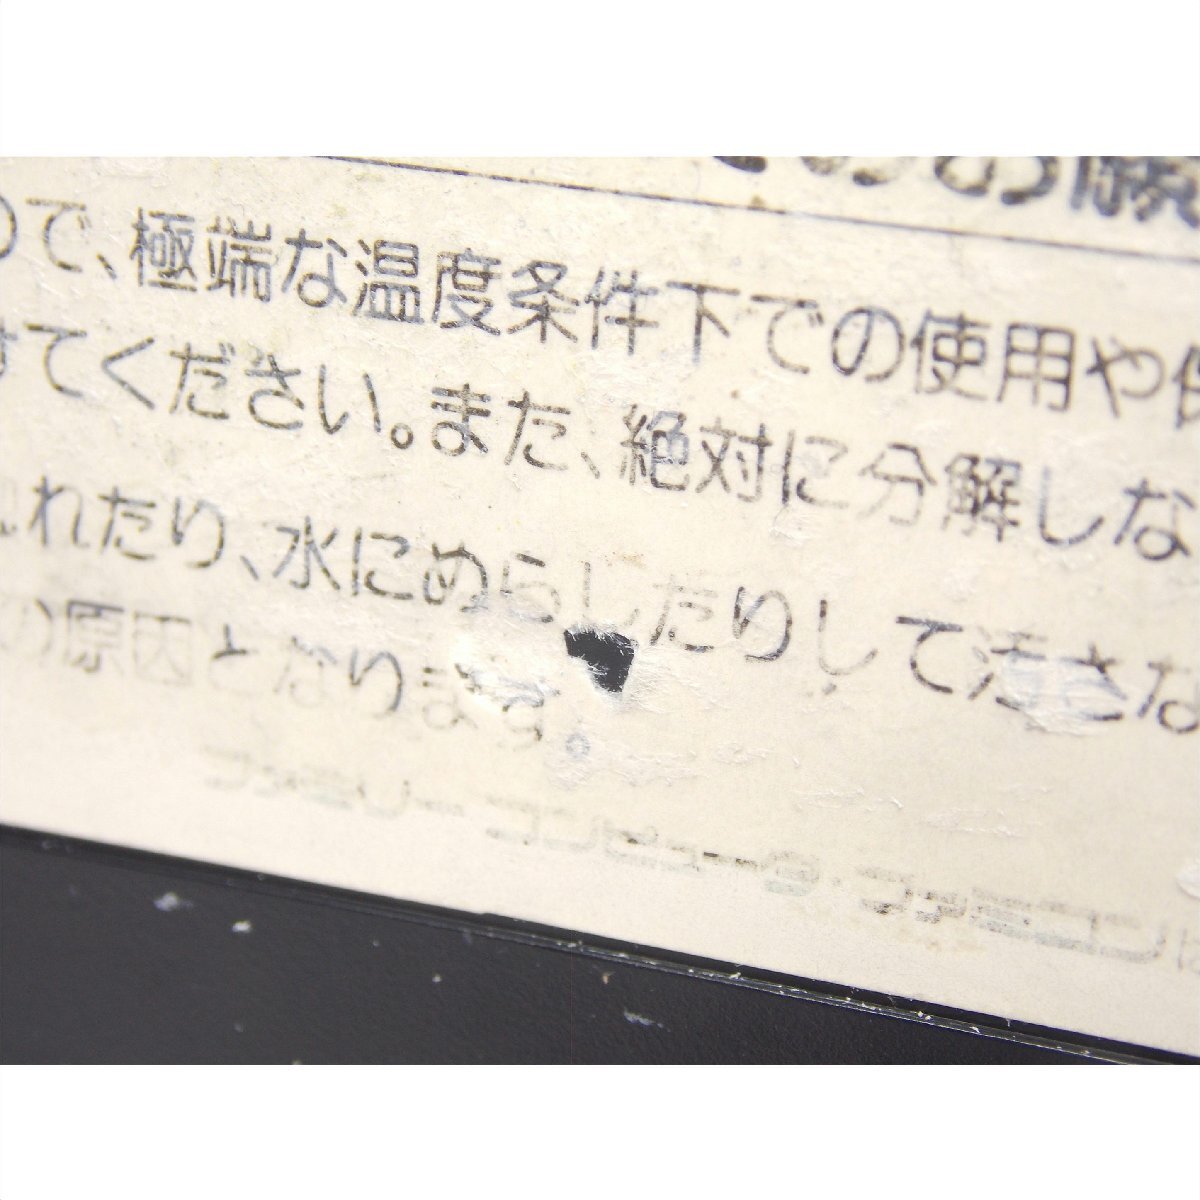 のお願
ので、極端な温度条件下での使用や保
けてください。また、絶対に分解しな
れたり、水にぬらしたりして汚さな
の原因となります。
ファミリーコンピュータ・ファミコンは